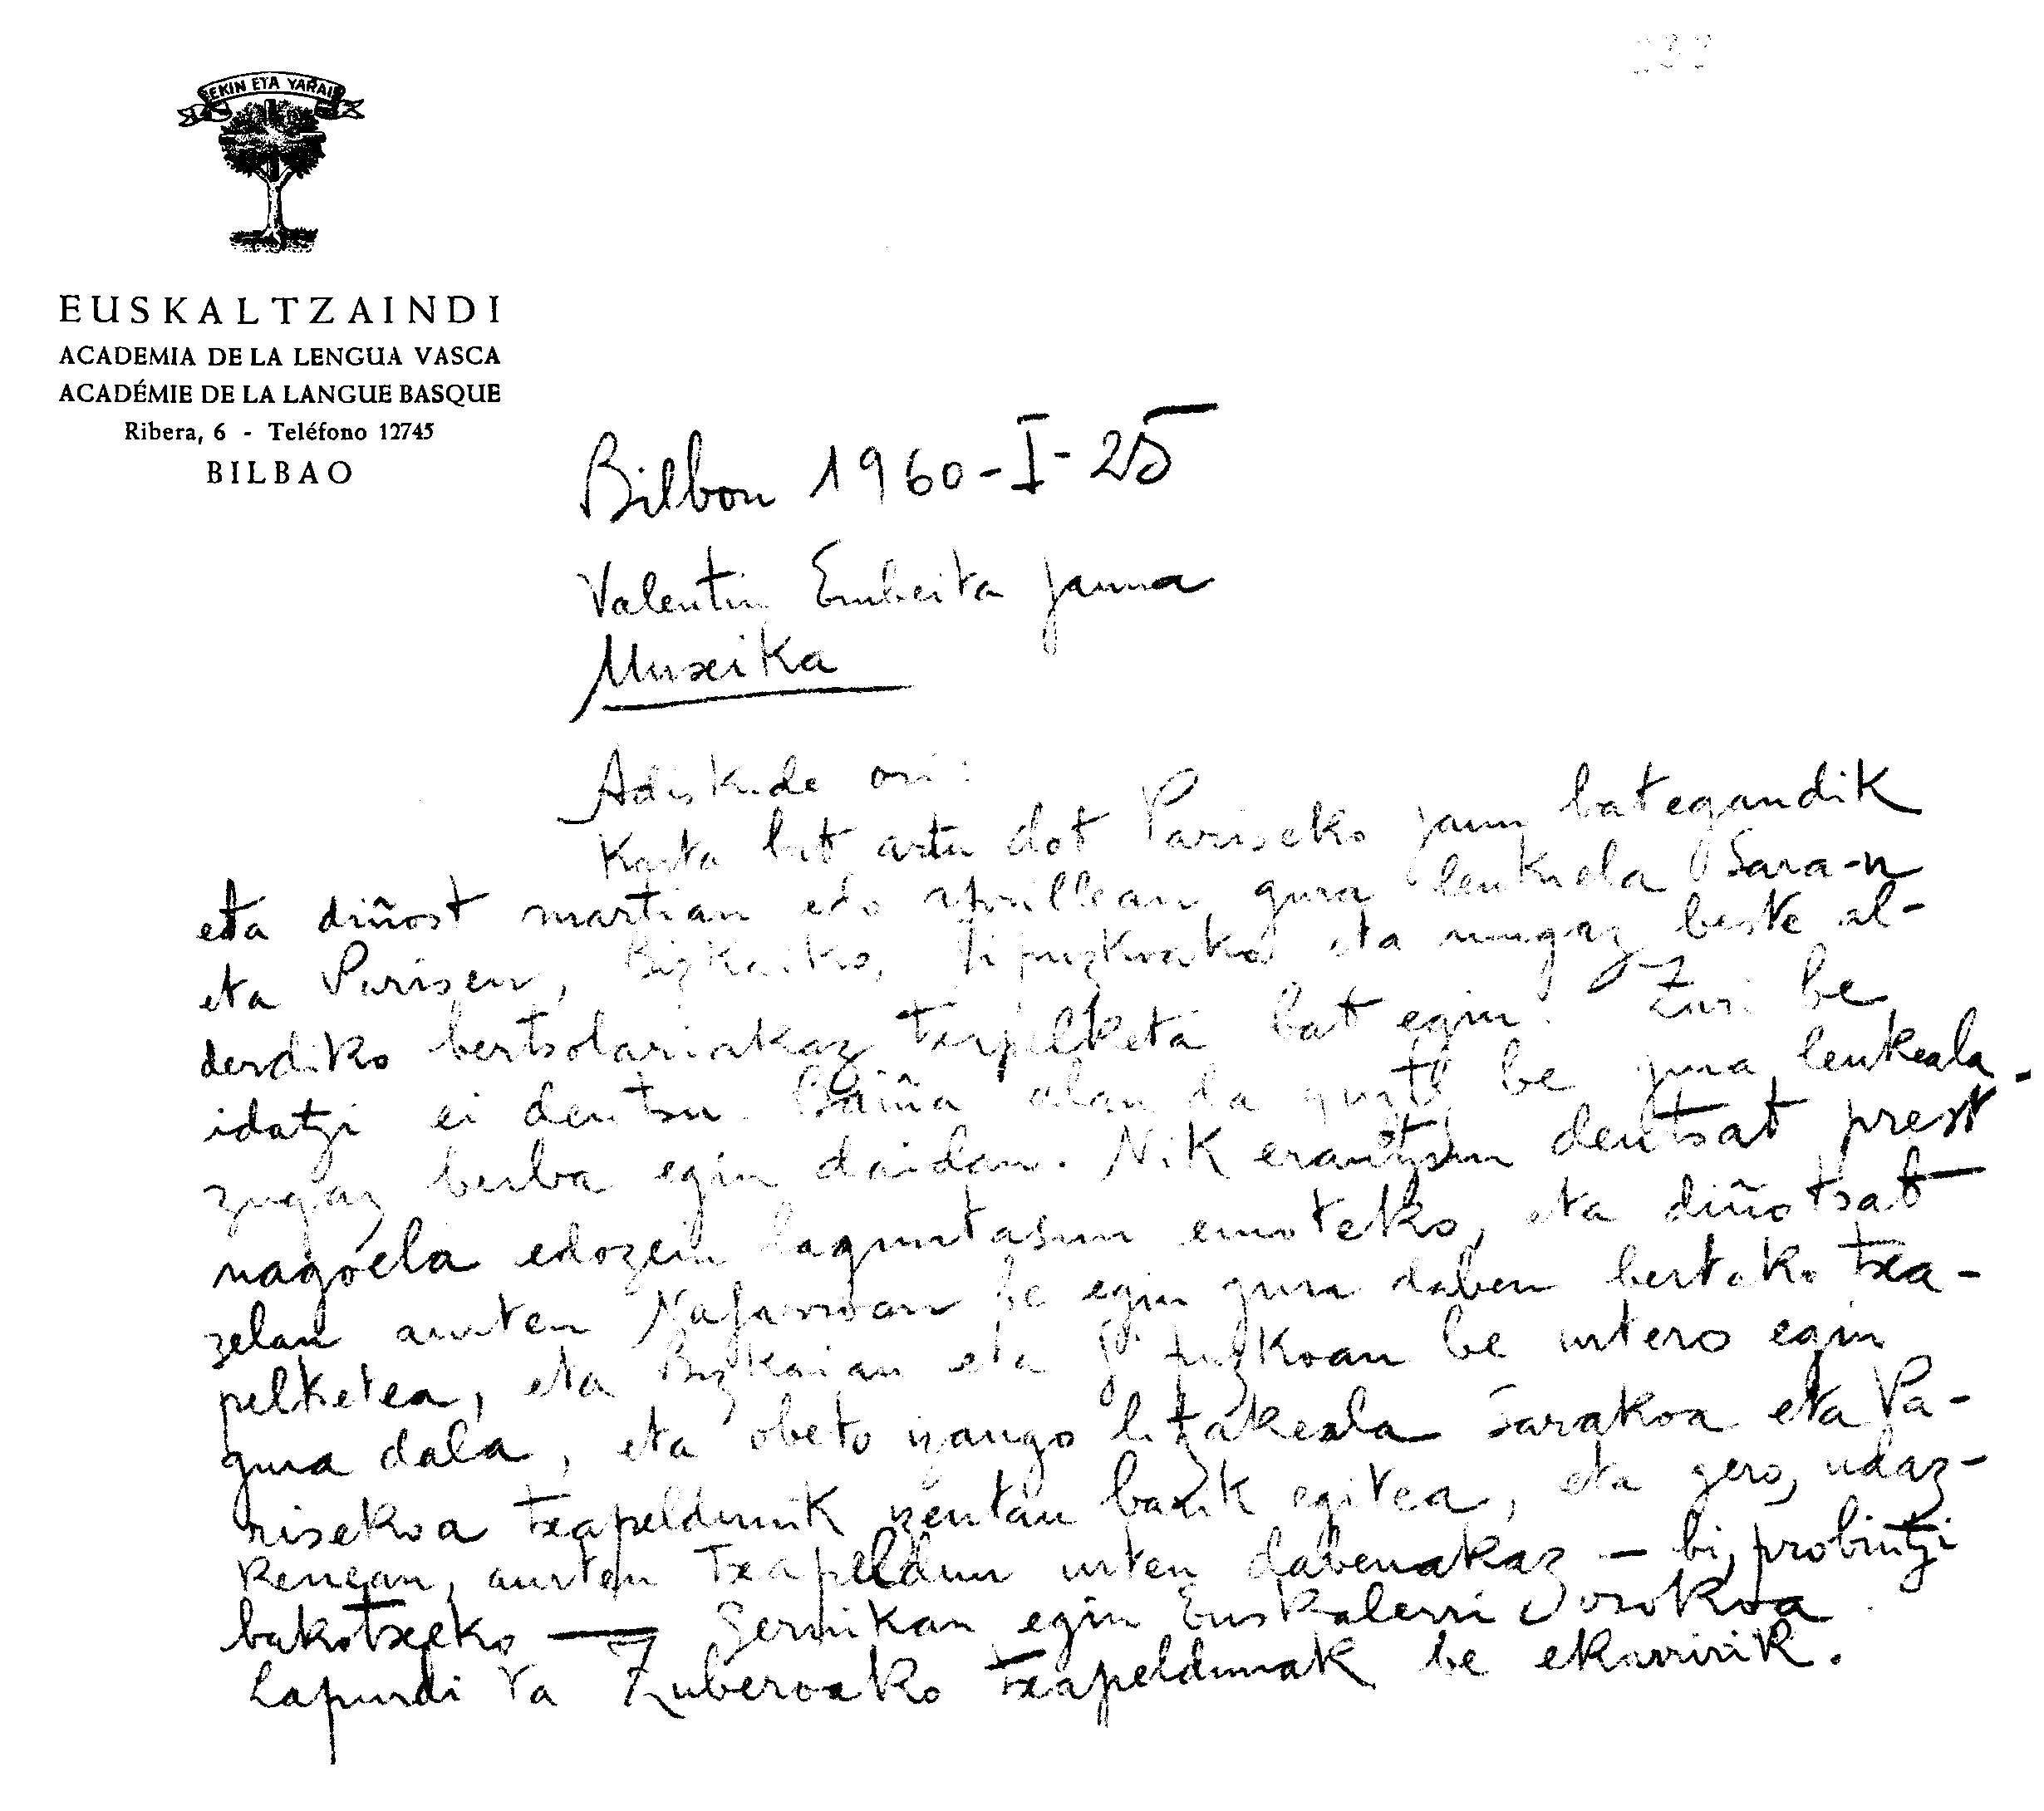 EKIN ETA YARAI
EUSKALTZAINDI
ACADEMIA DE LA LENGUA VASCA
ACADÉMIE DE LA LANGUE BASQUE
Ribera, 6 - Teléfono 12745
BILBAO
Bilbon 1960-I-25
Valentin Enbeita jauna
Muxika
Adiskide ori:
Karta bat artu dot Pariseko jaun bategandik
eta diñost martian edo aprillean gura leukiela Sara-n
eta Parisen, Bizkaiko, Gipuzkoako eta mugaz beste al-
derdiko bertsolariakaz txapelketa bat egin. Zuri be
idatzi ei deutsu. Baiña alan da guzti be gura leukeala
zugaz berba egin daidan. Nik erantzun deutsat prest
nagoela edozein laguntasun emoteko, eta diñotsat
zelan aurten Nafarroan be egin gura daben bertako txa-
pelketea, eta Bizkaian eta Gipuzkoan be urtero egin
gura dala, eta obeto izango litzakeala Sarakoa eta Pa-
risekoa txapeldunik izentau barik egitea, eta gero, udaz-
kenean, aurten txapeldun urten dabenakaz — bi, probintzi
bakotxeko — Gernikan egin Euskalerri osokoa.
Lapurdi ta Zuberoako txapeldunak be ekarririk.